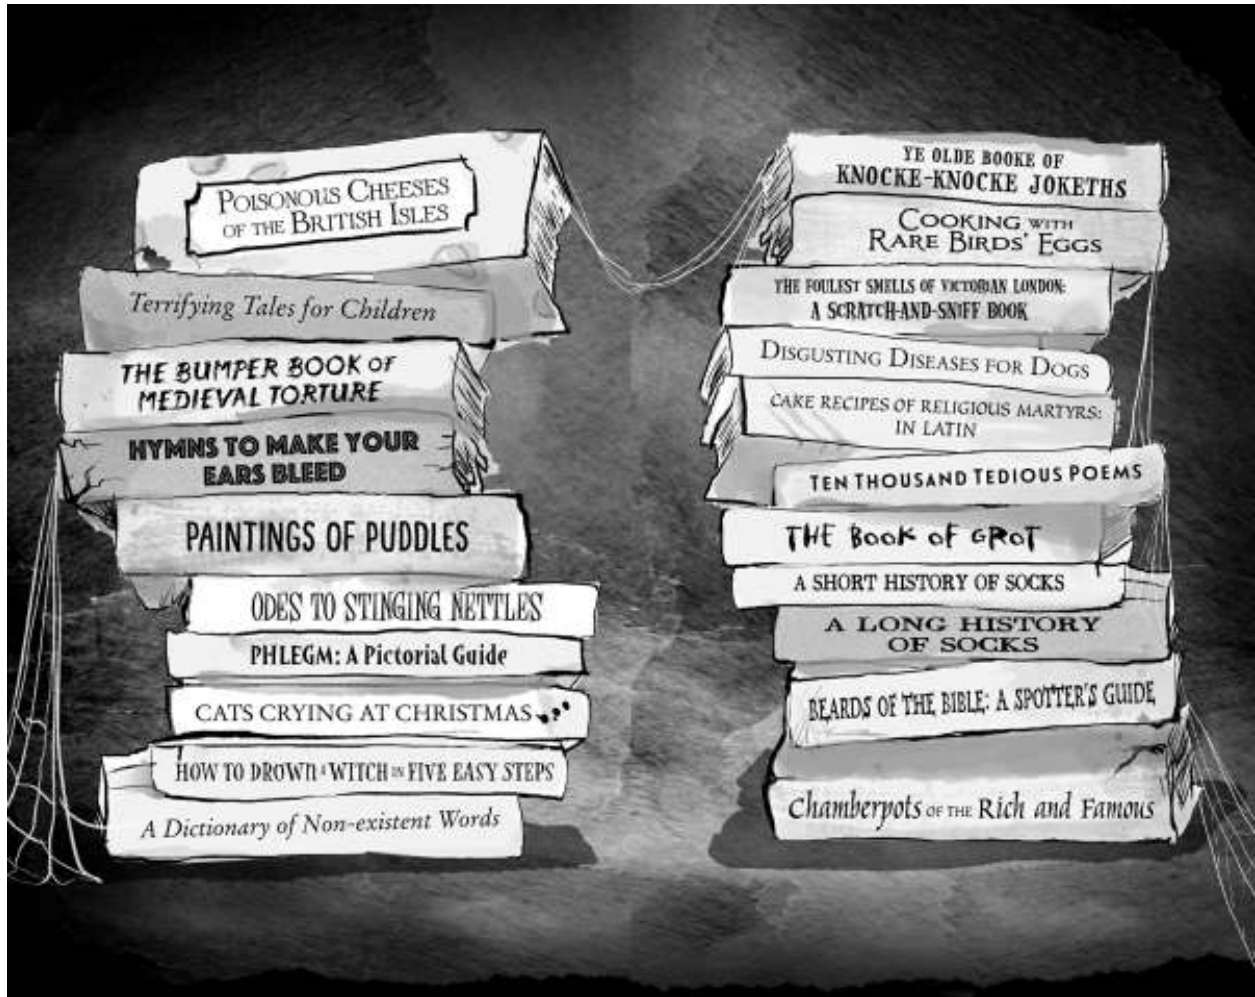 POISONOUS CHEESES
OF THE BRITISH ISLES
Terrifying Tales for Children
THE BUMPER BOOK OF
MEDIEVAL TORTURE
HYMNS TO MAKE YOUR
EARS BLEED
PAINTINGS OF PUDDLES
ODES TO STINGING NETTLES
PHLEGM: A Pictorial Guide
CATS CRYING AT CHRISTMAS
HOW TO DROWN A WITCH IN FIVE EASY STEPS
A Dictionary of Non-existent Words
YE OLDE BOOKE OF
KNOCKE-KNOCKE JOKETHS
COOKING WITH
RARE BIRDS' EGGS
THE FOULEST SMELLS OF VICTORIAN LONDON:
A SCRATCH-AND-SNIFF BOOK
DISGUSTING DISEASES FOR DOGS
CAKE RECIPES OF RELIGIOUS MARTYRS:
IN LATIN
TEN THOUSAND TEDIOUS POEMS
THE BOOK OF GROT
A SHORT HISTORY OF SOCKS
A LONG HISTORY
OF SOCKS
BEARDS OF THE BIBLE: A SPOTTER'S GUIDE
Chamberpots OF THE Rich and Famous